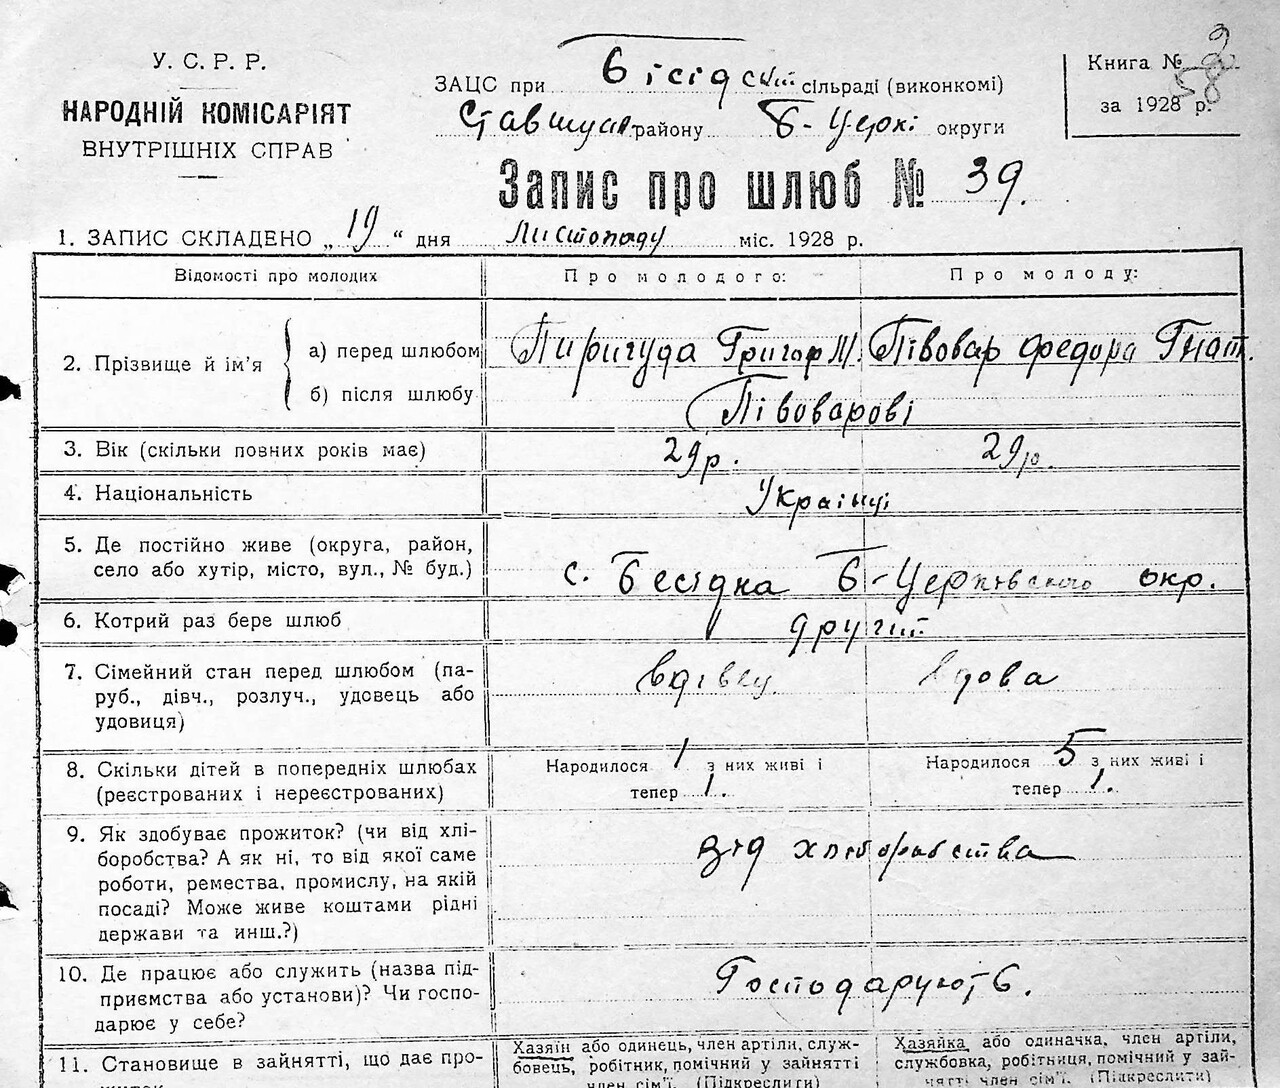 У. С. Р. Р.
НАРОДНІЙ КОМІСАРІЯТ
ВНУТРІШНІХ СПРАВ
ЗАЦС при Бісідскій сільраді (виконкомі)
району Б-Церкі округи
Книга №
за 1928 р.
Запис про шлюб № 39.
1. ЗАПИС СКЛАДЕНО „19“ дня Листопаду міс. 1928 р.
Відомості про молодих
Про молодого:
Про молоду:
2. Прізвище й ім'я
а) перед шлюбом
Пиригуда Григор М.
Півовар Федора Гнат.
б) після шлюбу
Півоварові
3. Вік (скільки повних років має)
29р.
29р.
4. Національність
Українці
5. Де постійно живе (округа, район,
село або хутір, місто, вул., № буд.)
с. Бесідка Б-Церковського окр.
6. Котрий раз бере шлюб
другий
7. Сімейний стан перед шлюбом (па-
руб., дівч., розлуч., удовець або
удовиця)
вдівец
вдова
8. Скільки дітей в попередніх шлюбах
(реєстрованих і нереєстрованих)
Народилося 1 з них живі і
тепер 1.
Народилося 5 з них живі і
тепер 1.
9. Як здобуває прожиток? (чи від хлі-
боробства? А як ні, то від якої саме
роботи, ремества, промислу, на якій
посаді? Може живе коштами рідні
держави та инш.?)
від хліборобства
10. Де працює або служить (назва під-
приємства або установи)? Чи госпо-
дарює у себе?
Господарюють.
11. Становище в зайнятті, що дає про-
житок
Хазяїн або одинець, член артілі, служ-
бовець, робітник, помічний у зайнятті
член сім'ї. (Підкреслити)
Хазяйка або одиначка, член артілі,
службовка, робітниця, помічний у зай-
нятті член сім'ї. (Підкреслити)